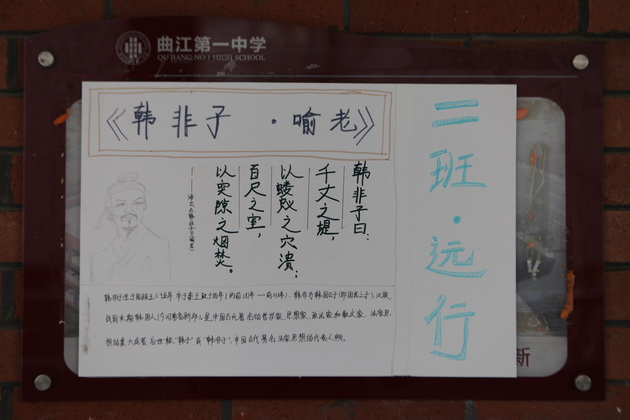 曲江第一中学
QUJIANG NO.1 HIGH SCHOOL
《韩非子·喻老》
韩非子曰：
千丈之堤，
以蝼蚁之穴溃；
百尺之室，
以突隙之烟焚。
二班·远行
韩非生于周赧王三十五年
战国末期韩国人
是中国古代著名的哲学家、思想家、政论家和散文家、法家思
想的集大成者，后世称"韩子"或"韩非子"，中国古代著名法家思想的代表人物。
新